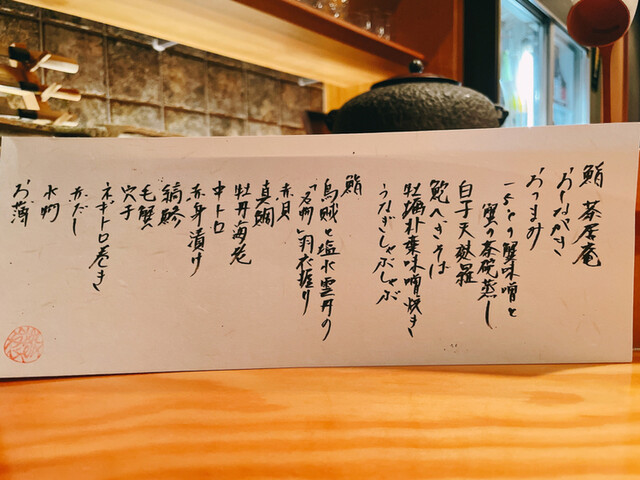 鮨 茶居庵
おしながき
おつまみ
いくらの蟹味噌と
蟹の茶碗蒸し
白子天麩羅
鮑へぎそば
牡蠣朴葉味噌焼き
うなぎしゃぶしゃぶ
鮨
烏賊と塩水雲丹の
「名物」羽衣握り
赤貝
真鯛
牡丹海老
中トロ
赤身漬け
縞鯵
毛蟹
穴子
ネギトロ巻き
赤だし
水物
お薄